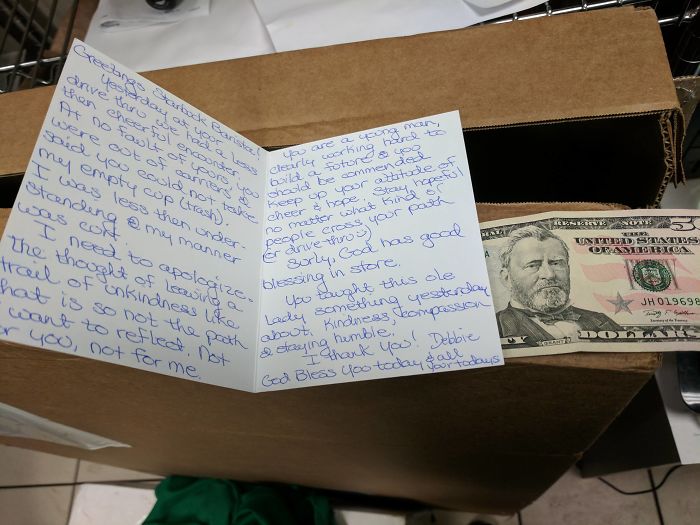 Greetings Starbuck Baristar!
Yesterday at your
drive thru we had a less
then cheerful encounter.
At no fault of yours, you
were out of carriers &
said you could not take
my empty cup (trash).
I was less then under-
standing & my manner
was curt.
I need to apologize.
The thought of leaving a
trail of unkindness like
that is so not the path
I want to reflect. Not
for you, not for me.
You are a young man,
clearly working hard to
build a future & you
should be commended.
Keep up your attitude of
cheer & hope. Stay hopeful
no matter what kind of
people cross your path
(or drive thru :)
Surly, God has good
blessing in store.
You taught this ole
Lady something yesterday
about, kindness, compassion
& staying humble.
I thank you! Debbie
God Bless you today & all
your todays
FEDERAL RESERVE NOTE
50
THE
UNITED STATES
OF AMERICA
JH019698
GRANT
DOLLARS